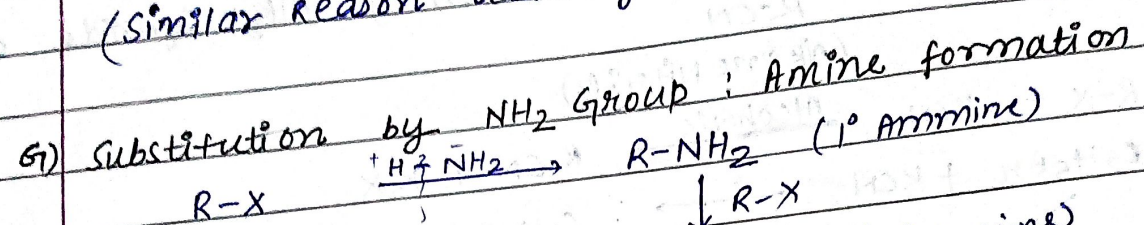 (Similar Reason
G) Substitution by NH₂ Group : Amine formation
R-X ⁺H ⁻NH₂ → R-NH₂ (1° Ammine)
↓ R-X